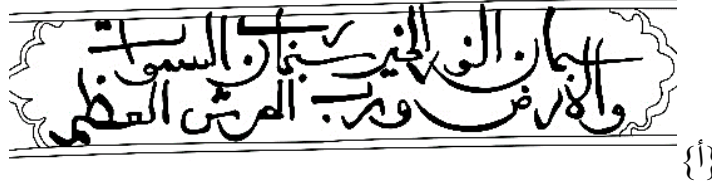 سبحان النور الخير سبحان رب السموات
والارض ورب العرش العظيم
{أ}